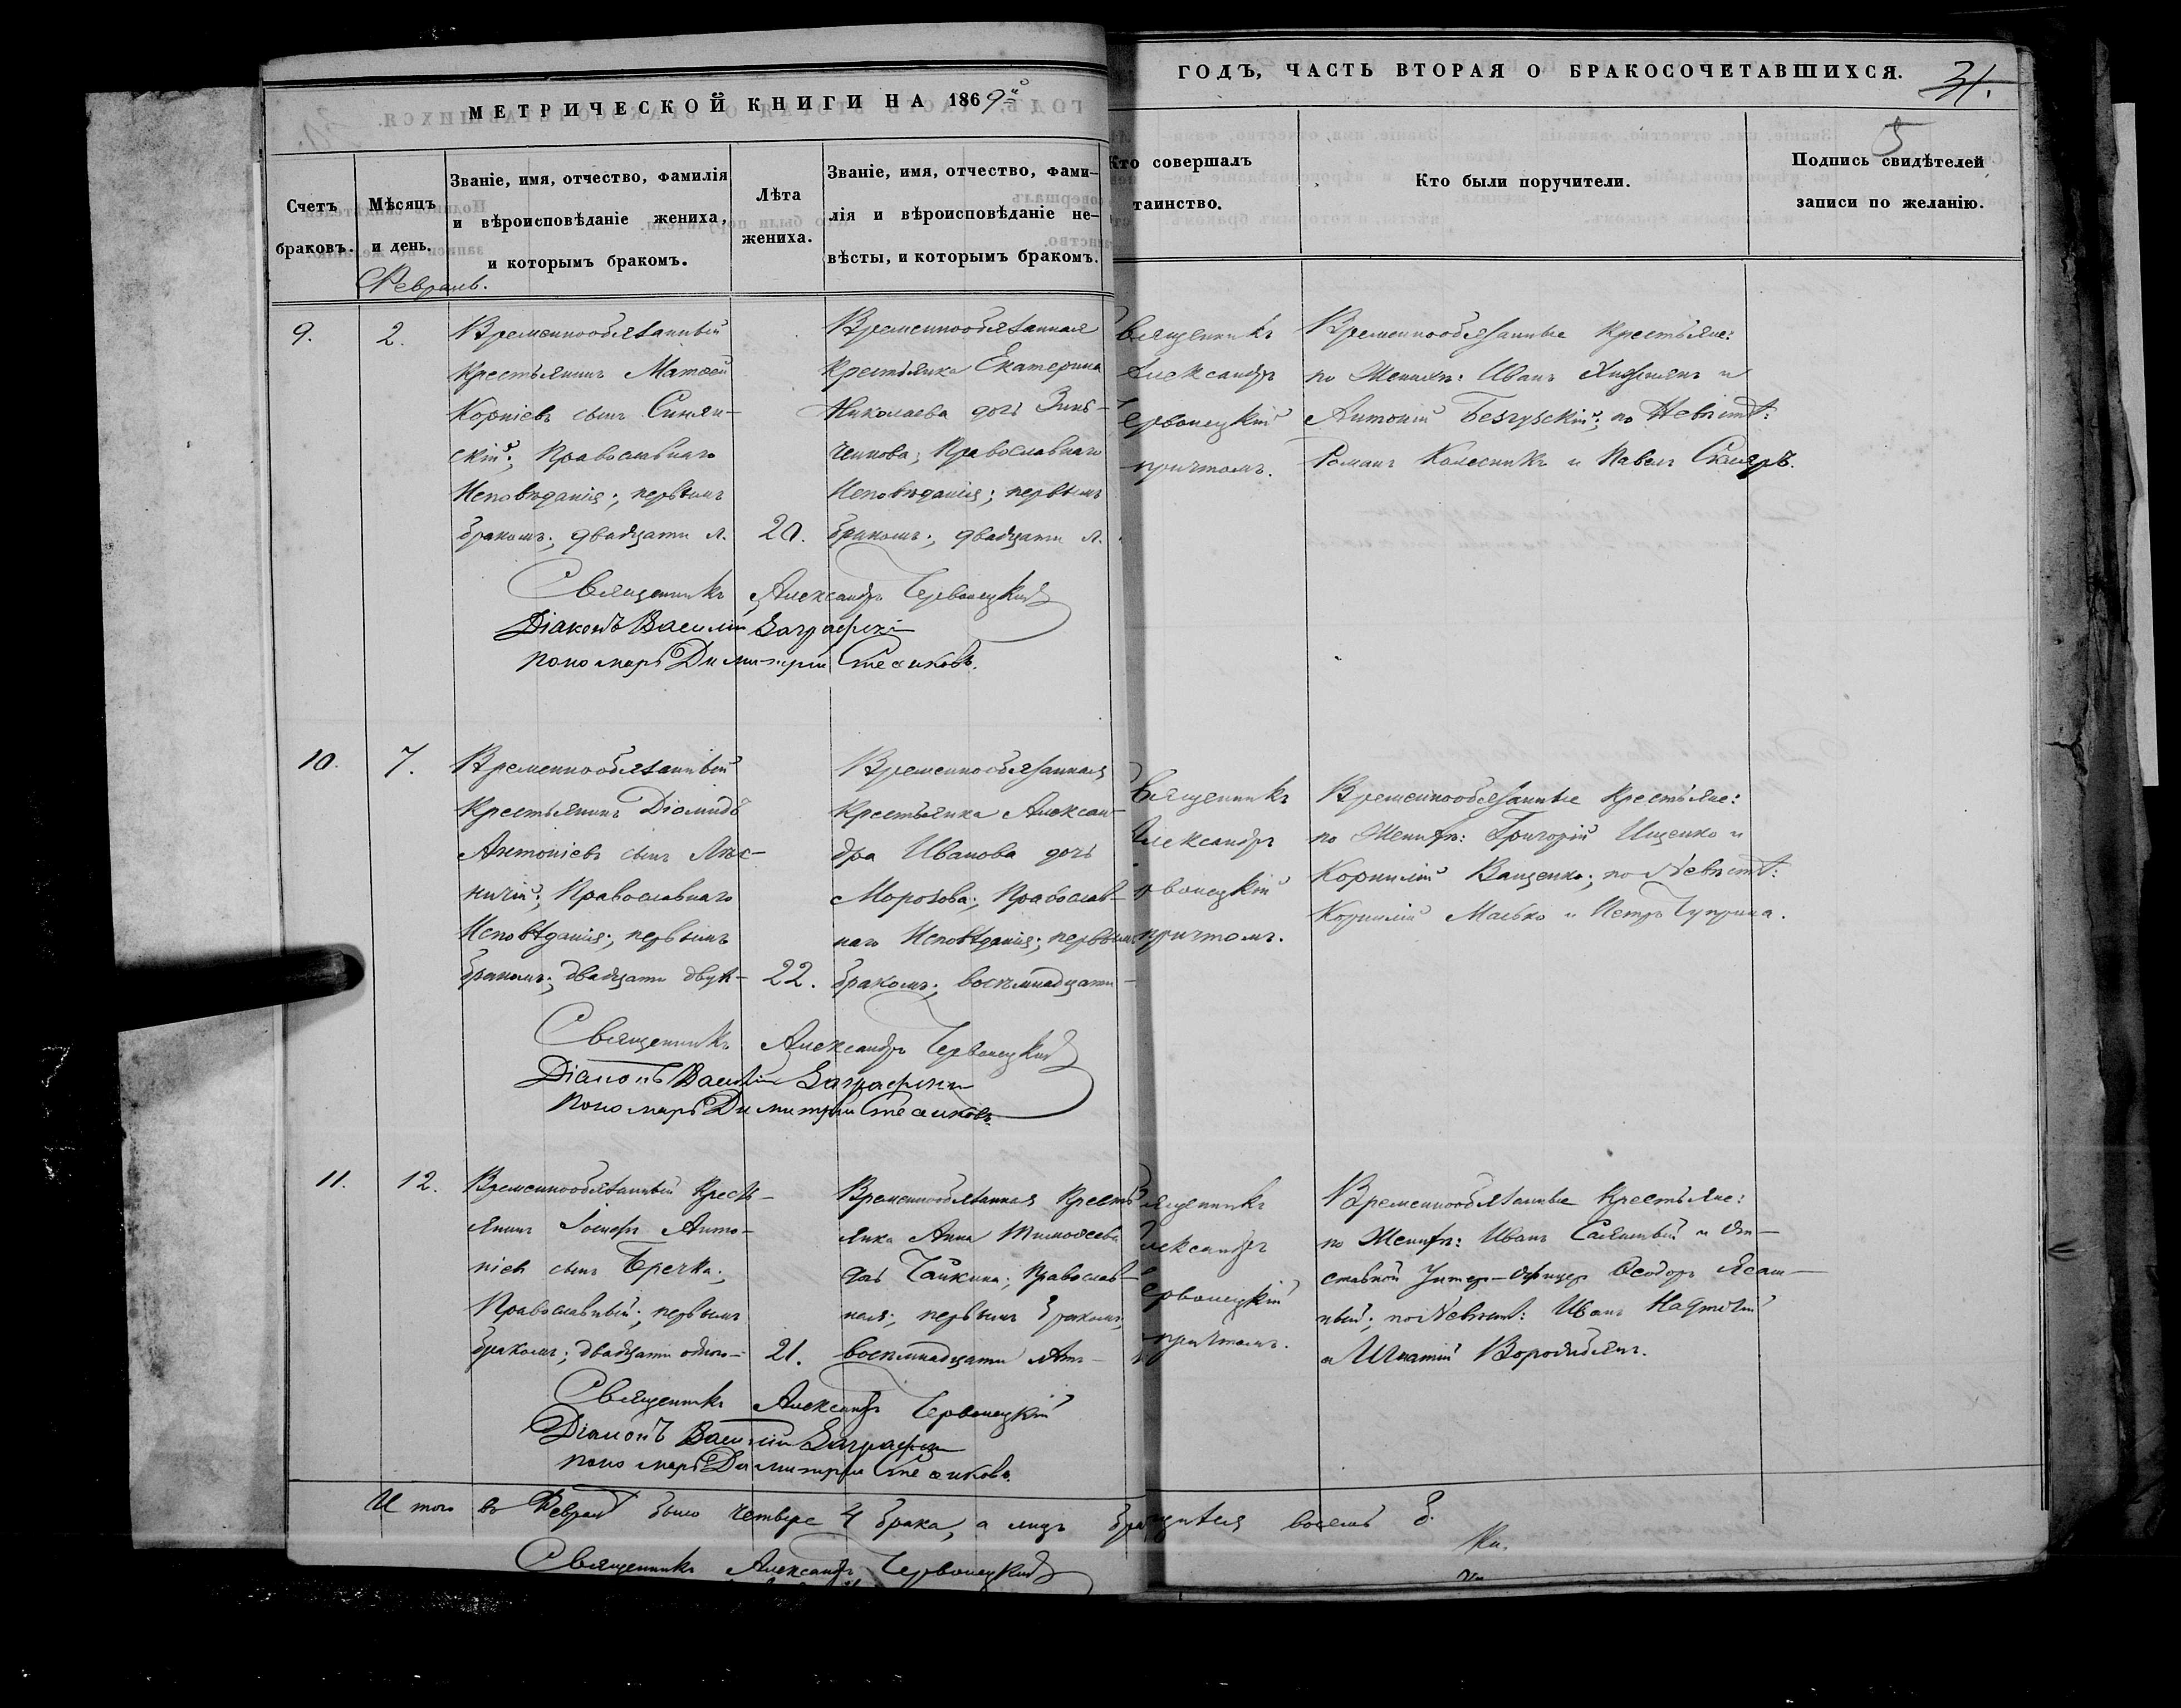 МЕТРИЧЕСКОЙ КНИГИ НА 1869й
ГОДЪ, ЧАСТЬ ВТОРАЯ О БРАКОСОЧЕТАВШИХСЯ.
31.
5
Счетъ
браковъ.
Мѣсяцъ
и день.
Званіе, имя, отчество, фамилія
и вѣроисповѣданіе жениха,
и которымъ бракомъ.
Лѣта
жениха.
Званіе, имя, отчество, фами-
лія и вѣроисповѣданіе не-
вѣсты, и которымъ бракомъ.
Кто совершалъ
таинство.
Кто были поручители.
Подпись свидѣтелей
записи по желанію.
Февраль.
9.
2.
Временнообязанный
Крестьянинъ Матѳей
Корніевъ сынъ Синян-
скій; Православнаго
Исповѣданія; первымъ
бракомъ; двадцати л.
20.
Временнообязанная
Крестьянка Екатерина
Николаева дочь Зинь-
ченкова; Православнаго
Исповѣданія; первымъ
бракомъ; двадцати л.
Священникъ
Александръ
Червонецкій
причтомъ.
Временнообязанные Крестьяне:
по Женихѣ: Иванъ и
Антоній Безгубскій; по Невѣстѣ:
Романъ Колесникъ и Павелъ Скляръ.
Священникъ Александръ Червонецкій
Діаконъ Василій
пономарь Димитрій
10.
7.
Временнообязанный
Крестьянинъ Діомидъ
Антоніевъ сынъ Лѣс-
ничій; Православнаго
Исповѣданія; первымъ
бракомъ; двадцати двух-
22.
Временнообязанная
Крестьянка Алексан-
дра Иванова дочь
Морозова; Православ-
наго Исповѣданія; первымъ
бракомъ; восемнадцати-
Священникъ
Александръ
Червонецкій
причтомъ.
Временнообязанные Крестьяне:
по Женихѣ: Григорій Ищенко и
Корнилій Ващенко; по Невѣстѣ:
Корнилій Малько и Петръ Чуприна.
Священникъ Александръ Червонецкій
Діаконъ Василій
пономарь Димитрій
11.
12.
Временнообязанный Кресть-
янинъ Іосифъ Анто-
ніевъ сынъ Гречка;
Православный; первымъ
бракомъ; двадцати одного-
21.
Временнообязанная Кресть-
янка Анна Тимоѳеева
дочь Чайкина; Православ-
ная; первымъ бракомъ;
восемнадцати лѣтъ-
Священникъ
Александръ
Червонецкій
причтомъ.
Временнообязанные Крестьяне:
по Женихѣ: Иванъ и От-
ставной Унтер-Офицеръ Ѳеодоръ
по Невѣстѣ: Иванъ
и Игнатій
Священникъ Александръ Червонецкій
Діаконъ Василій
пономарь Димитрій
Итого въ Февралѣ было четыре 4 брака, а лицъ восемь 8.
Священникъ Александръ Червонецкій